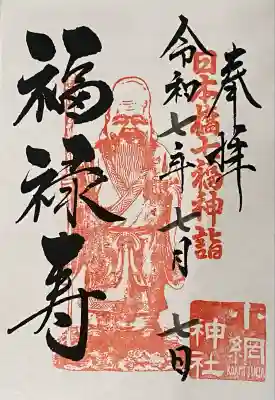 奉拝
日本橋七福神詣
令和七年七月七日
福禄寿
小網
神社
KOAMI JINJA